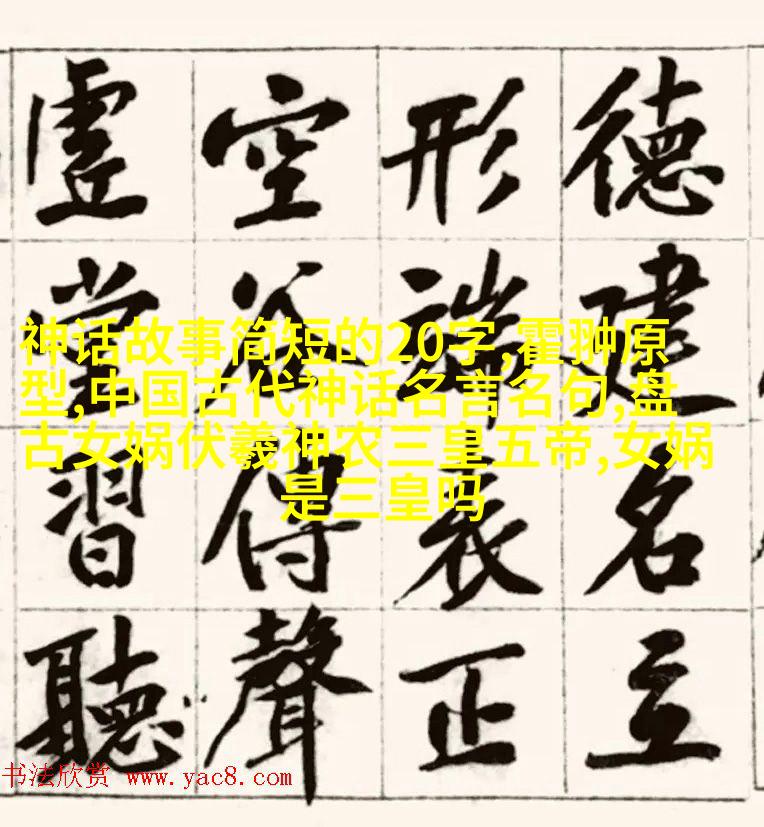 德建名立
形端表正
空谷傳聲
虛堂習聽
神话故事简短的20字,霍翀原
型,中国古代神话名言名句,盘
古女娲伏羲神农三皇五帝,女娲
是三皇吗
书法欣赏 www.yac8.com